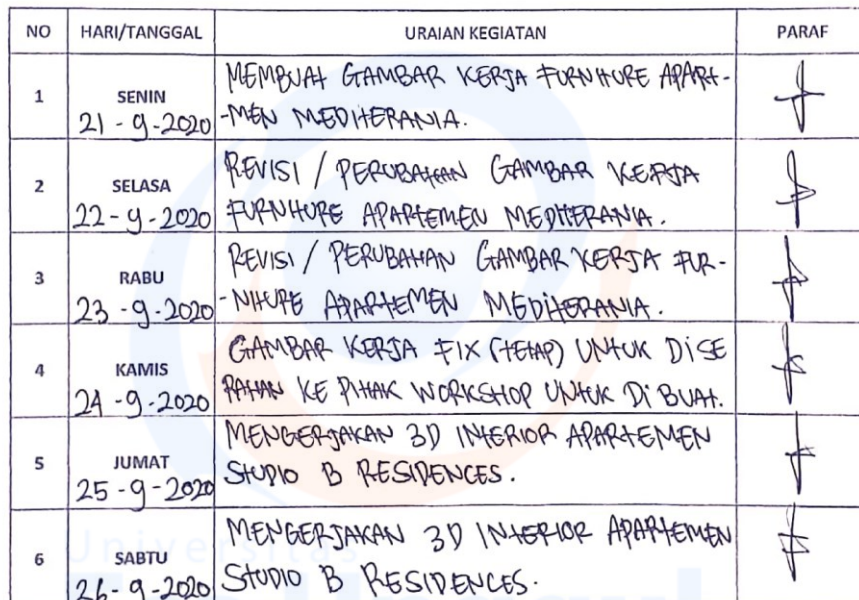 NO HARI/TANGGAL URAIAN KEGIATAN PARAF
1 SENIN 21-9-2020 MEMBUAT GAMBAR KERJA FURNITURE APART-
-MEN MEDITERANIA.
2 SELASA 22-9-2020 REVISI / PERUBAHAN GAMBAR KERJA
FURNITURE APARTEMEN MEDITERANIA.
3 RABU 23-9-2020 REVISI / PERUBAHAN GAMBAR KERJA FUR-
-NITURE APARTEMEN MEDITERANIA.
4 KAMIS 24-9-2020 GAMBAR KERJA FIX (TETAP) UNTUK DISE
RAHAN KE PIHAK WORKSHOP UNTUK DIBUAT.
5 JUMAT 25-9-2020 MENGERJAKAN 3D INTERIOR APARTEMEN
STUDIO B RESIDENCES.
6 SABTU 26-9-2020 MENGERJAKAN 3D INTERIOR APARTEMEN
STUDIO B RESIDENCES.
Universitas